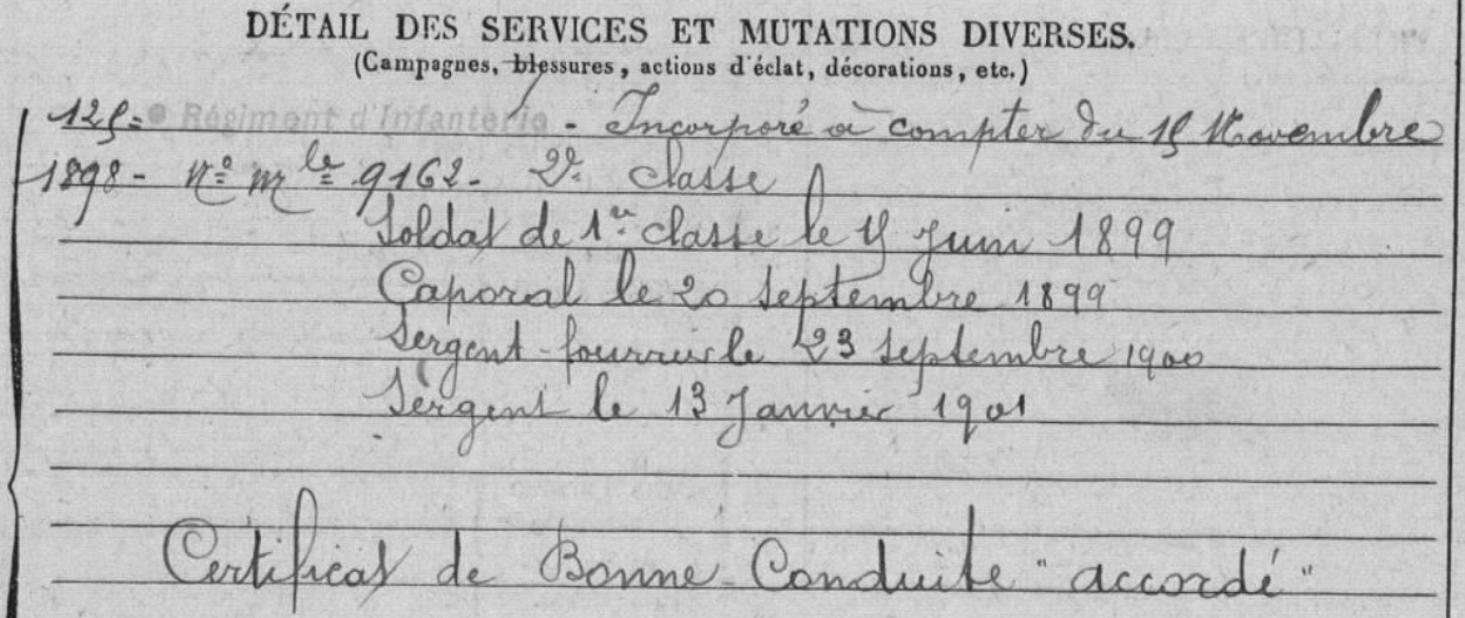 DÉTAIL DES SERVICES ET MUTATIONS DIVERSES.
(Campagnes, blessures, actions d'éclat, décorations, etc.)
125e Régiment d'Infanterie - Incorporé à compter du 15 Novembre
1898 - No mle 9162 - 2e classe
Soldat de 1re classe le 15 Juin 1899
Caporal le 20 Septembre 1899
Sergent-fourrier le 23 Septembre 1900
Sergent le 13 Janvier 1901
Certificat de Bonne Conduite "accordé"